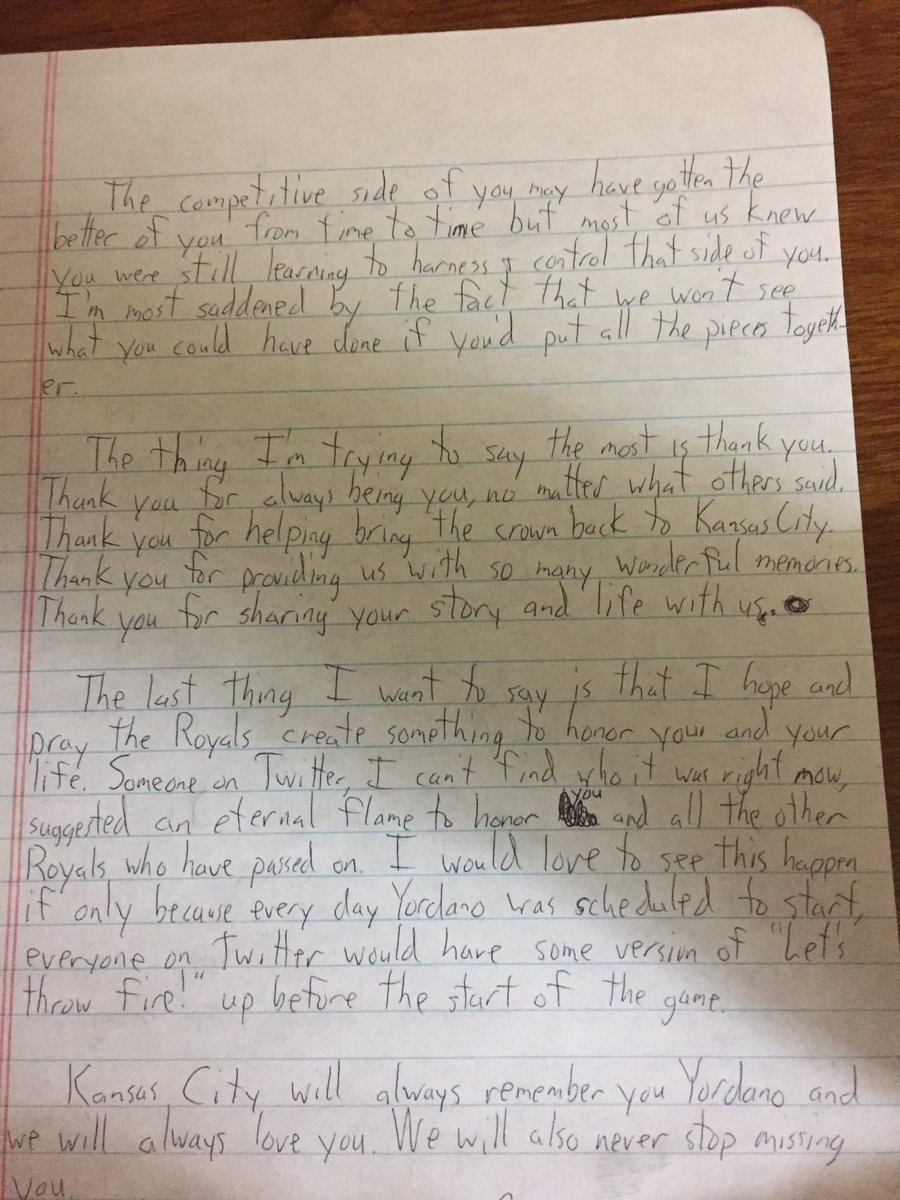 The competitive side of you may have gotten the
better of you from time to time but most of us knew
you were still learning to harness & control that side of you.
I'm most saddened by the fact that we won't see
what you could have done if you'd put all the pieces togeth-
er.
The thing I'm trying to say the most is thank you.
Thank you for always being you, no matter what others said.
Thank you for helping bring the crown back to Kansas City.
Thank you for providing us with so many wonderful memories.
Thank you for sharing your story and life with us.
The last thing I want to say is that I hope and
pray the Royals create something to honor your and your
life. Someone on Twitter, I can't find who it was right now,
suggested an eternal flame to honor you and all the other
Royals who have passed on. I would love to see this happen
if only because every day Yordano was scheduled to start,
everyone on Twitter would have some version of "Let's
throw fire!" up before the start of the game.
Kansas City will always remember you Yordano and
we will always love you. We will also never stop missing
you.